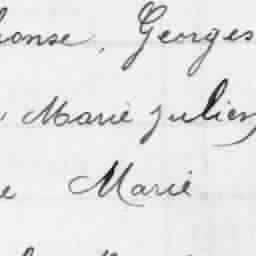 onse, Georges
Marie Julien
e Marie